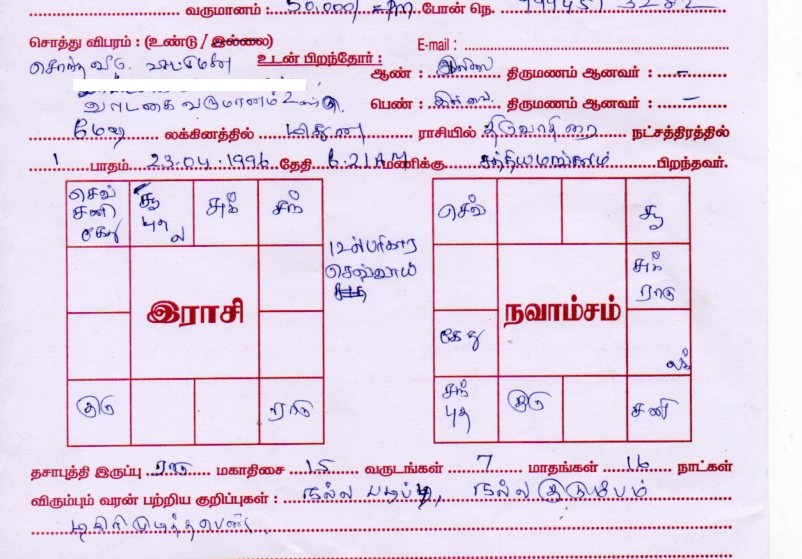 வருமானம் : 50,000/- போன் நெ. 99945 3282
சொத்து விபரம் : (உண்டு / இல்லை) E-mail :
சொந்த வீடு உடன் பிறந்தோர் :
ஆண் : இல்லை திருமணம் ஆனவர் : -
வாடகை வருமானம் உண்டு பெண் : இல்லை திருமணம் ஆனவர் : -
மேஷ லக்கினத்தில் மிதுன ராசியில் திருவாதிரை நட்சத்திரத்தில்
1 பாதம் 23.04.1996 தேதி 6.21 AM மணிக்கு சத்தியமங்கலம் பிறந்தவர்.
செவ் சூ சுக் சந்
சனி புத
கேது ல
12ல் பரிகார
செவ்வாய்
இராசி
குரு ராகு
செவ் சூ
சுக்
ராகு
நவாம்சம்
கேது
லக்
சந் குரு சனி
புத
தசாபுத்தி இருப்பு ராகு மகாதிசை 15 வருடங்கள் 7 மாதங்கள் 16 நாட்கள்
விரும்பும் வரன் பற்றிய குறிப்புகள் : நல்ல படிப்பு, நல்ல குடும்பம்
டிகிரி முடித்த பெண்